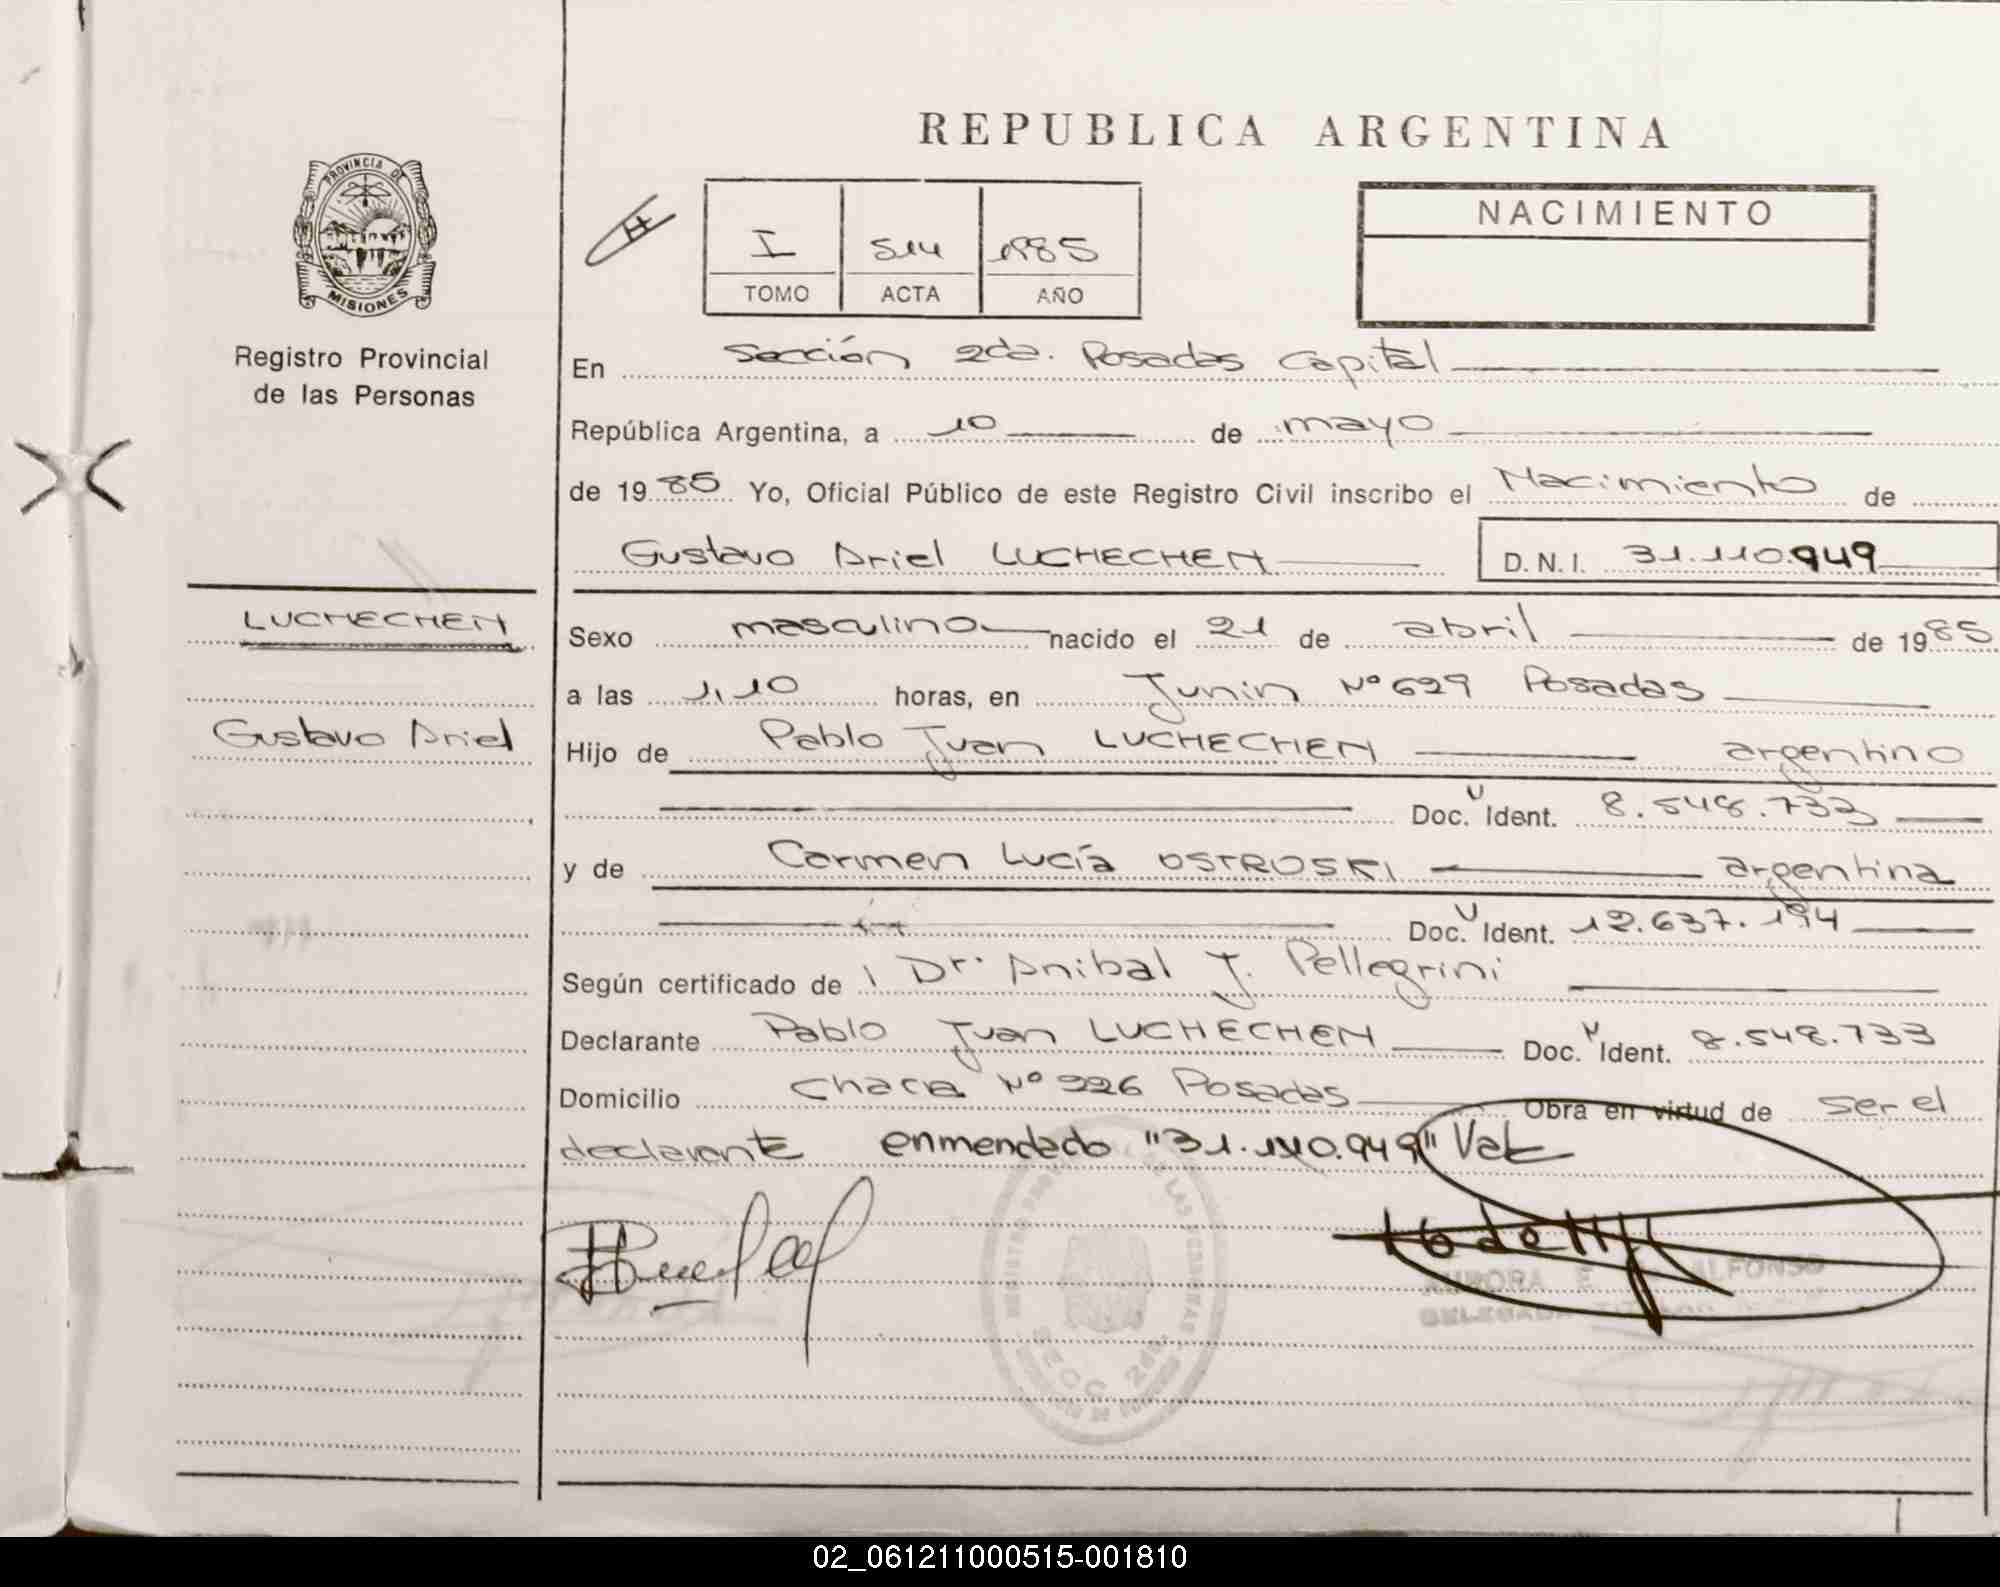 REPUBLICA ARGENTINA
PROVINCIA DE
MISIONES
Registro Provincial
de las Personas
I 514 1985
TOMO ACTA AÑO
NACIMIENTO
En Sección 2da. Posadas Capital
República Argentina, a 10 de mayo
de 1985 Yo, Oficial Público de este Registro Civil inscribo el Nacimiento de
Gustavo Ariel LUCHECHEN D.N.I. 31.110.949
LUCHECHEN
Gustavo Ariel
Sexo masculino nacido el 21 de abril de 1985
a las 1,10 horas, en Junin Nº 629 Posadas
Hijo de Pablo Juan LUCHECHEN argentino
Doc. Ident. 8.548.733
y de Carmen Lucía OSTROSKI argentina
Doc. Ident. 12.637.194
Según certificado de Dr. Anibal J. Pellegrini
Declarante Pablo Juan LUCHECHEN Doc. Ident. 8.548.733
Domicilio Chacra Nº 226 Posadas Obra en virtud de ser el
declarante enmendado "31.110.949" Vale
REGISTRO DE LAS PERSONAS
SECC 2da.
AURORA E. ALFONSO
DELEGADA TITULAR
02_061211000515-001810